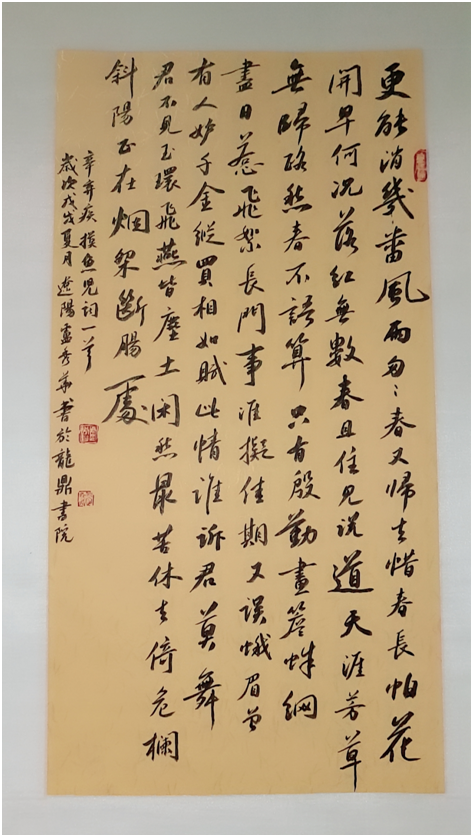 更能消幾番風雨匆〻春又歸去惜春長怕花
開早何況落紅無數春且住見說道天涯芳草
無歸路怨春不語算只有殷勤畫簷蛛網
盡日惹飛絮長門事准擬佳期又誤蛾眉曾
有人妒千金縱買相如賦此情誰訴君莫舞
君不見玉環飛燕皆塵土閑愁最苦休去倚危欄
斜陽正在烟柳斷腸處
辛弃疾摸魚兒詞一首
歲次戊戌夏月遼陽盧秀華書於龍鼎書院